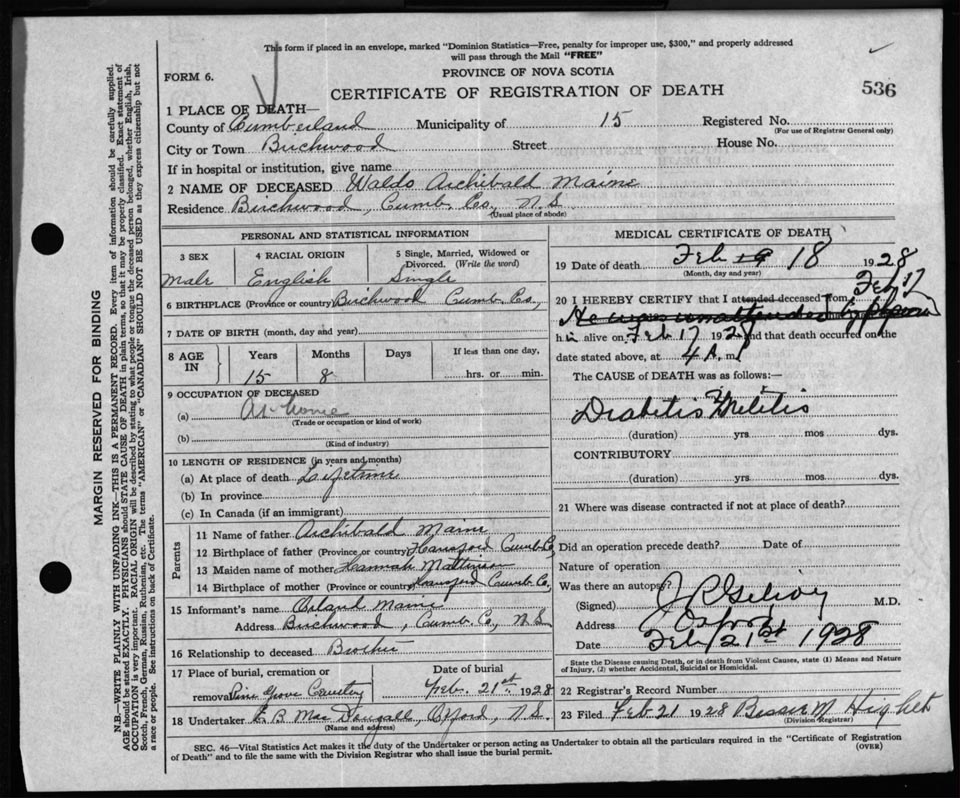 This form if placed in an envelope, marked "Dominion Statistics—Free, penalty for improper use, $300," and properly addressed
will pass through the Mail "FREE"
FORM 6.
PROVINCE OF NOVA SCOTIA
CERTIFICATE OF REGISTRATION OF DEATH
536
1 PLACE OF DEATH—
County of Cumberland Municipality of 15 Registered No.
(For use of Registrar General only)
City or Town Birchwood Street House No.
If in hospital or institution, give name
2 NAME OF DECEASED Waldo Archibald Maine
Residence Birchwood, Cumb. Co., N.S.
(Usual place of abode)
PERSONAL AND STATISTICAL INFORMATION
3 SEX
4 RACIAL ORIGIN
5 Single, Married, Widowed or
Divorced. (Write the word)
Male English Single
6 BIRTHPLACE (Province or country) Birchwood Cumb. Co.,
7 DATE OF BIRTH (month, day and year)
8 AGE
IN
Years Months Days If less than one day,
15 8 hrs. or min.
9 OCCUPATION OF DECEASED
(a) At home
(Trade or occupation or kind of work)
(b)
(Kind of industry)
10 LENGTH OF RESIDENCE (in years and months)
(a) At place of death Lifetime
(b) In province
(c) In Canada (if an immigrant)
Parents
11 Name of father Archibald Maine
12 Birthplace of father (Province or country) Hansford Cumb. Co
13 Maiden name of mother Hannah Mattinson
14 Birthplace of mother (Province or country) Hansford Cumb. Co,
15 Informant's name Orland Maine
Address Birchwood, Cumb. Co., N.S.
16 Relationship to deceased Brother
17 Place of burial, cremation or
removal Pine Grove Cemetery
Date of burial
Feb. 21st. 1928
18 Undertaker E B MacDougall, Oxford, N.S.
(Name and address)
MEDICAL CERTIFICATE OF DEATH
19 Date of death Feb 19 18 1928
(Month, day and year)
20 I HEREBY CERTIFY that I attended deceased from Feb 17
He was unattended by
h alive on Feb 17 1928 and that death occurred on the
date stated above, at 4 A. M
The CAUSE of DEATH was as follows:—
Diabetis Melitis
(duration) yrs mos dys.
CONTRIBUTORY
(duration) yrs. mos. dys.
21 Where was disease contracted if not at place of death?
Did an operation precede death? Date of
Nature of operation
Was there an autopsy?
(Signed) M.D.
Address Oxford
Date Feb 21st 1928
State the Disease causing Death, or in death from Violent Causes, state (1) Means and Nature
of Injury, (2) whether Accidental, Suicidal or Homicidal.
22 Registrar's Record Number
23 Filed Feb 21 1928 Bessie M. Hughes
(Division Registrar)
SEC. 46—Vital Statistics Act makes it the duty of the Undertaker or person acting as Undertaker to obtain all the particulars required in the "Certificate of Registration
of Death" and to file the same with the Division Registrar who shall issue the burial permit.
(OVER)
MARGIN RESERVED FOR BINDING
N.B.—WRITE PLAINLY WITH UNFADING INK—THIS IS A PERMANENT RECORD. Every item of information should be carefully supplied.
AGE should be stated EXACTLY. PHYSICIANS should STATE CAUSE OF DEATH in plain terms, so that it may be properly classified. Exact statement of
OCCUPATION is very important. RACIAL ORIGIN will be described by stating to what people or tongue the deceased person belonged, whether English, Irish,
Scotch, French, German, Russian, Ruthenian, etc. The terms "AMERICAN" or "CANADIAN" SHOULD NOT BE USED as they express citizenship but not
a race or people. See instructions on back of Certificate.